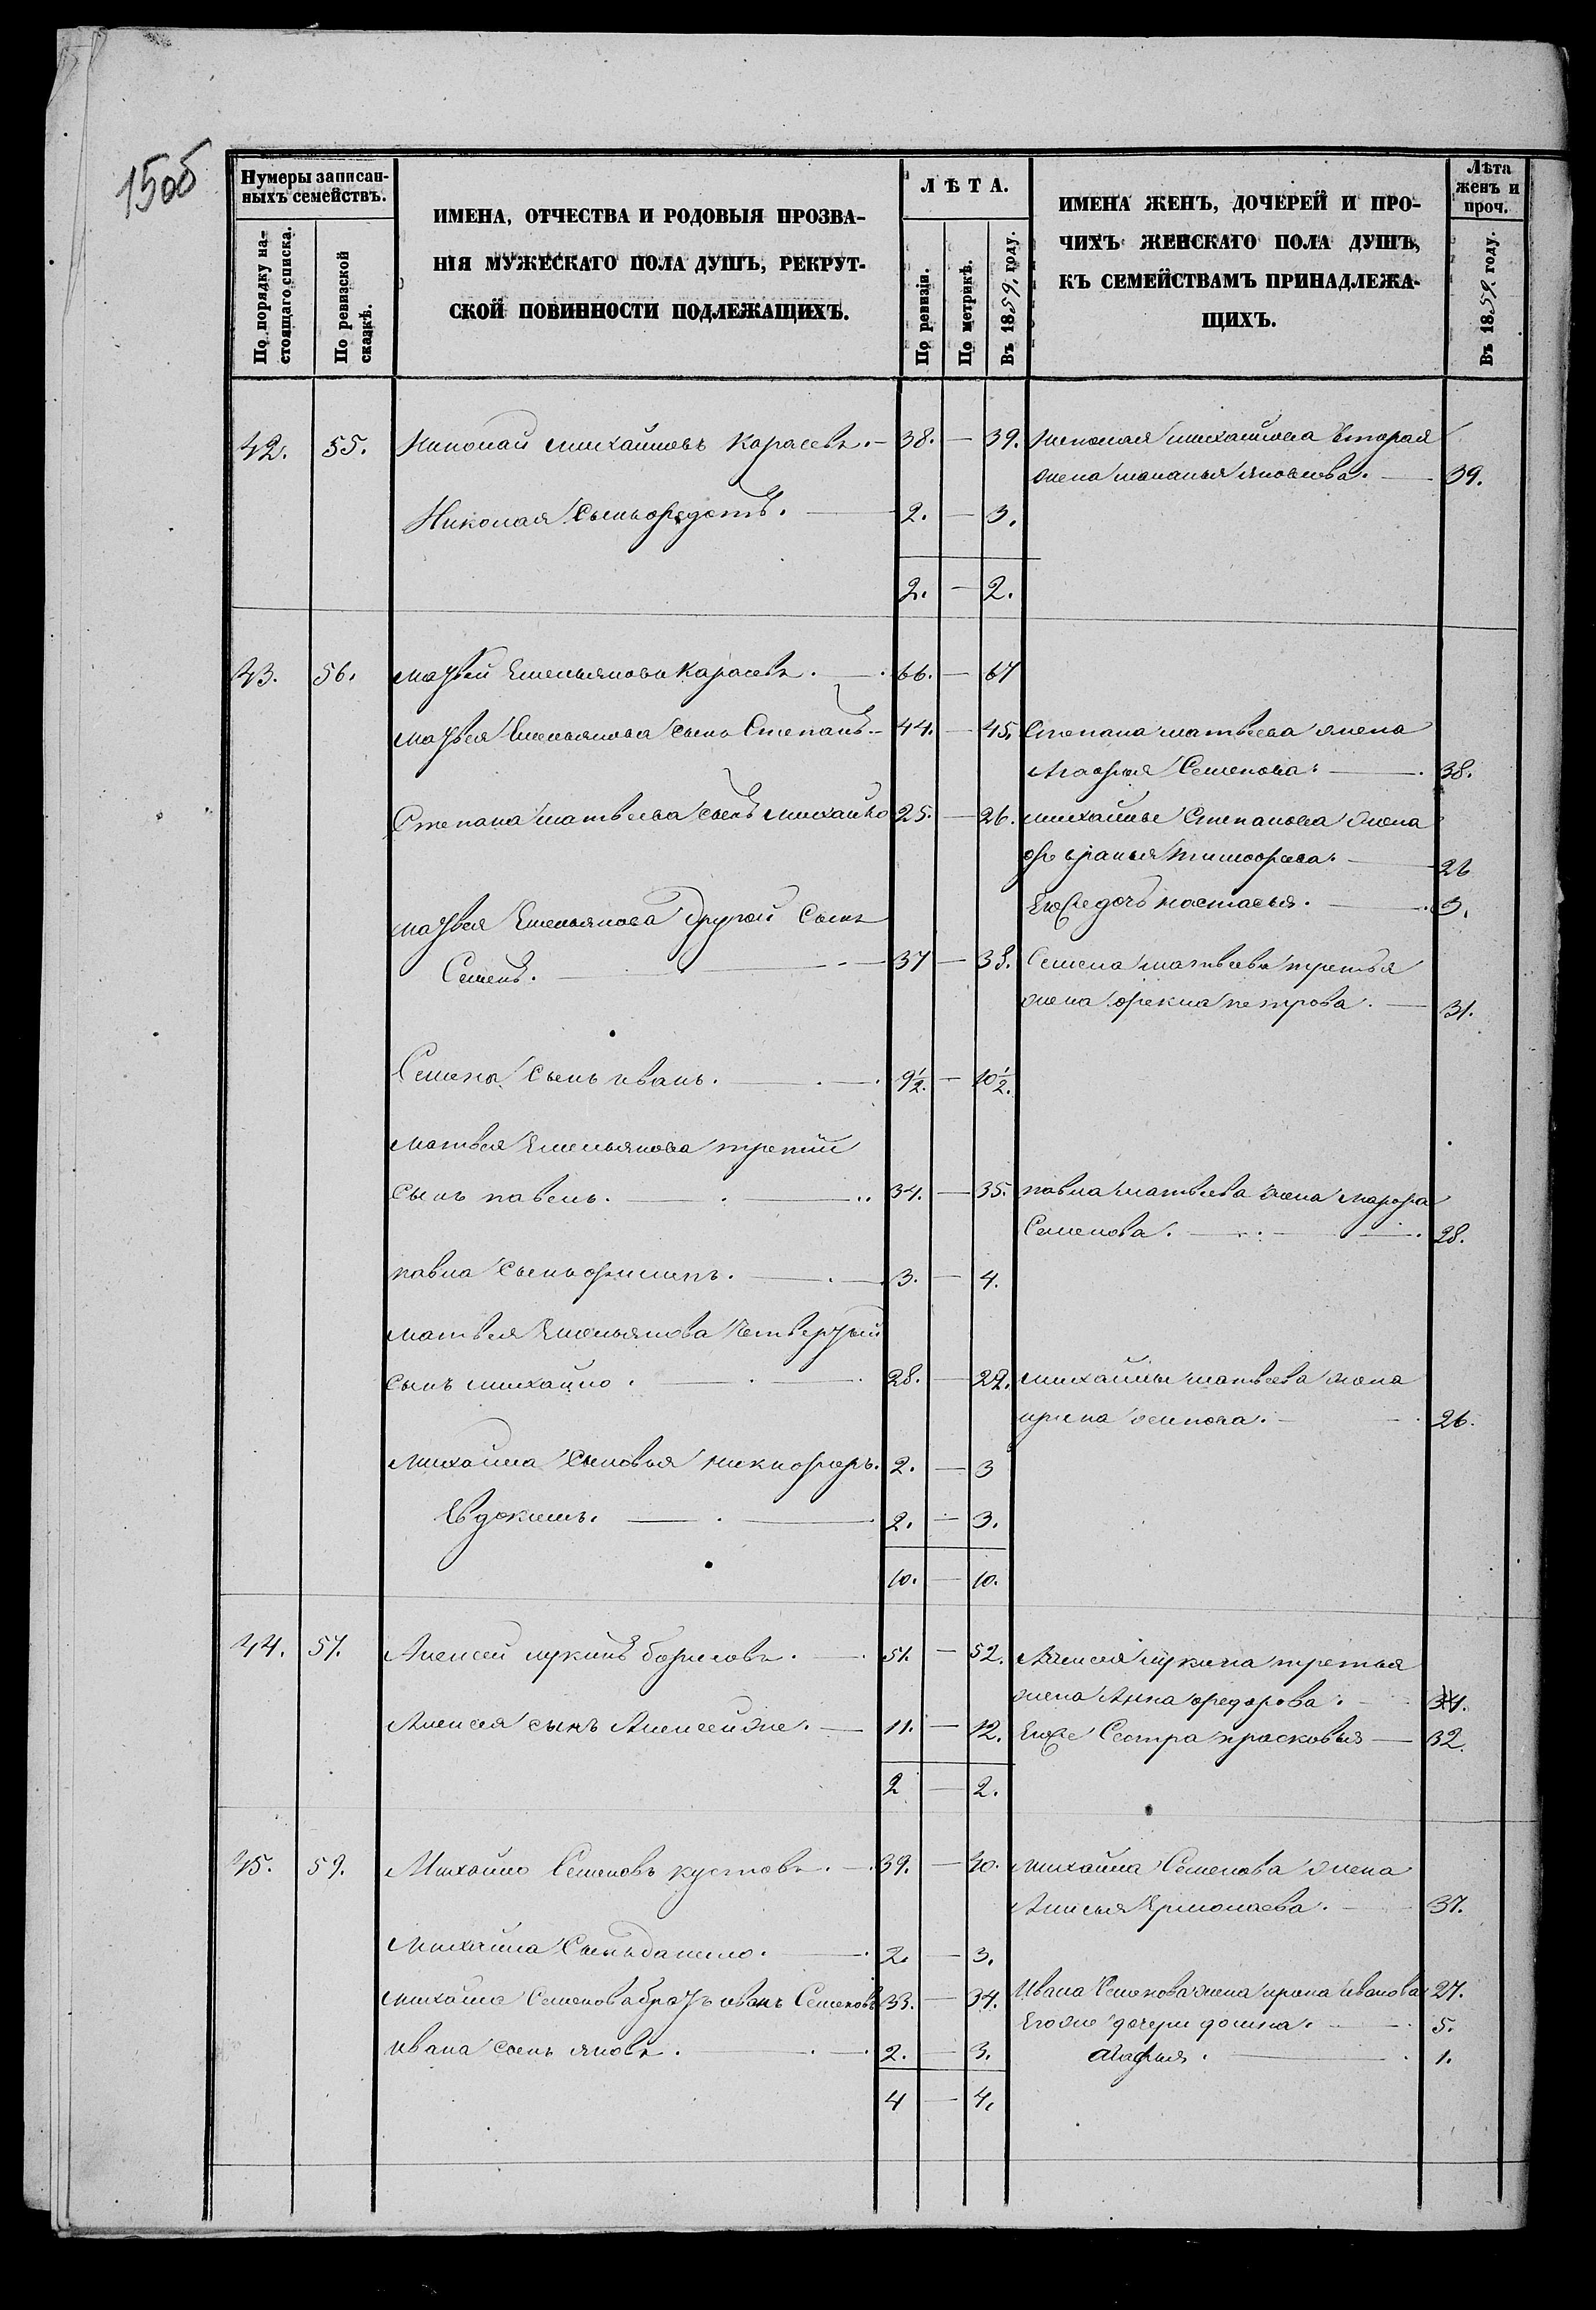 15об
Нумеры записан-
ныхъ семействъ.
По порядку на-
стоящаго списка.
По ревизской
сказкѣ.
ИМЕНА, ОТЧЕСТВА И РОДОВЫЯ ПРОЗВА-
НІЯ МУЖЕСКАГО ПОЛА ДУШЪ, РЕКРУТ-
СКОЙ ПОВИННОСТИ ПОДЛЕЖАЩИХЪ.
ЛѢТА.
По ревизіи.
По метрикѣ.
Въ 1859. году.
ИМЕНА ЖЕНЪ, ДОЧЕРЕЙ И ПРО-
ЧИХЪ ЖЕНСКАГО ПОЛА ДУШЪ,
КЪ СЕМЕЙСТВАМЪ ПРИНАДЛЕЖА-
ЩИХЪ.
Лѣта
женъ и
проч.
Въ 1859. году.
42. 55. Николай михайловъ Карасевъ. – 38. – 39. николая михайлова вторая
жена маланья яковлева. – 39.
Николая сынъ федотъ. – 2. – 3.
2. – 2.
43. 56. матвѣй Емельяновъ Карасевъ. – 66. – 67
матвѣя Емельянова сынъ Степанъ. – 44. – 45. Степана матвѣева жена
Агафья Семенова. – 38.
Степана матвѣева сынъ михайло 25. – 26. михайлы Степанова жена
тимофеева. – 26
Его же дочь настасья. – 3.
матвѣя Емельянова другой сынъ
Семенъ. – 37 – 38. Семена матвѣева третья
жена фекла петрова. – 31.
Семена сынъ иванъ. – 9½. – 10½.
матвѣя Емельянова третій
сынъ павелъ. – 34. – 35. павла матвѣева жена марфа
Семенова. – 28.
павла сынъ филипъ. – 3. – 4.
матвѣя Емельянова четвертый
сынъ михайло. – 28. – 29. михайлы матвѣева жена
ирина осипова. – 26.
михайла сыновья никифоръ. 2. – 3
Евдокимъ. – 2. – 3.
10. – 10.
44. 57. Алексей лукинъ борисовъ. – 51. – 52. Алексея лукина третья
жена Анна федорова. – 34.
Алексея сынъ Алексей же. – 11. – 12. Его же Сестра прасковья – 32.
2 – 2.
45. 59. Михайло Семеновъ кустовъ. – 39. – 40. михайла Семенова жена
Анисья Ермолаева. – 37.
михайла сынъ данило. – 2. – 3.
михайла Семенова братъ иванъ Семеновъ 33. – 34. Ивана Семенова жена ирина иванова 27.
Его же дочери домна. – 5.
ивана сынъ яковъ. – 2. – 3. агафья. – 1.
4 – 4.